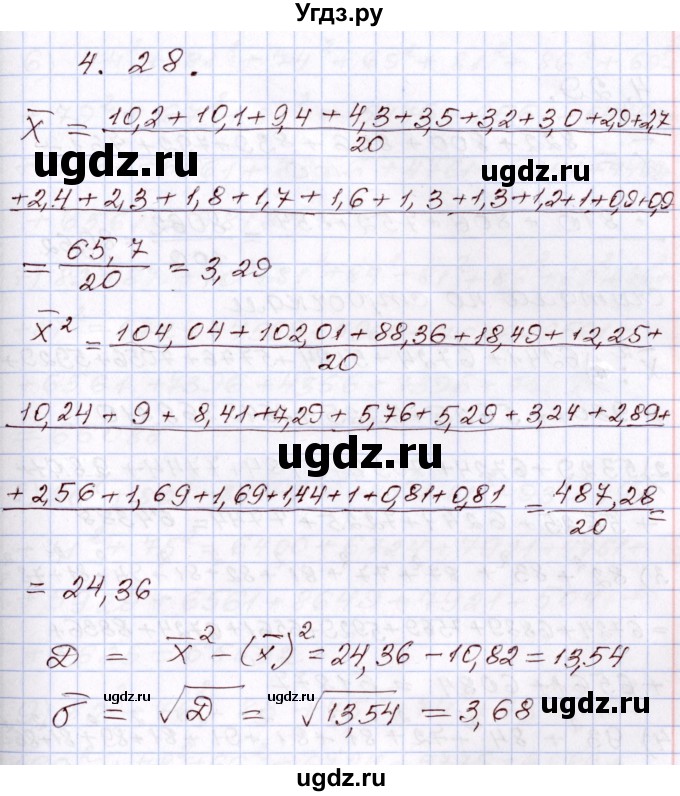 Угдз.ру
4.28.
x̄ = 10,2+10,1+9,4+4,3+3,5+3,2+3,0+2,9+2,7
20
ugdz.ru
ugdz.ru
+2,4+2,3+1,8+1,7+1,6+1,3+1,3+1,2+1+0,9+0,9
= 65,7/20 = 3,29
x̄² = 104,04+102,01+88,36+18,49+12,25+
20
10,24+9+8,41+7,29+5,76+5,29+3,24+2,89+
ugdz.ru
+2,56+1,69+1,69+1,44+1+0,81+0,81 = 487,28/20 =
= 24,36
D = x̄² - (x̄)² = 24,36 - 10,82 = 13,54
ugdz.ru ugdz.ru ugdz.ru
σ̄ = √D = √13,54 = 3,68
ugdz.ru